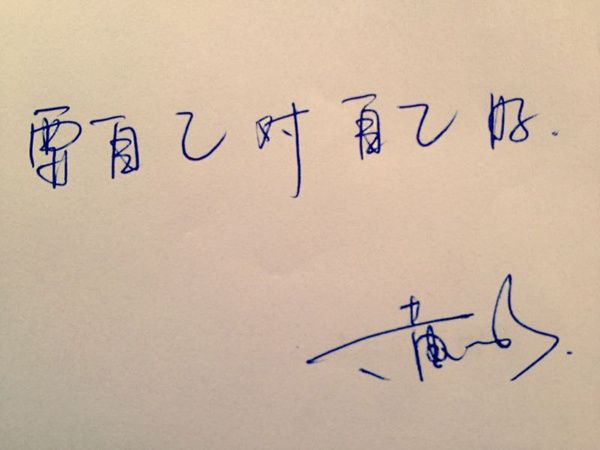 要自己对自己好.